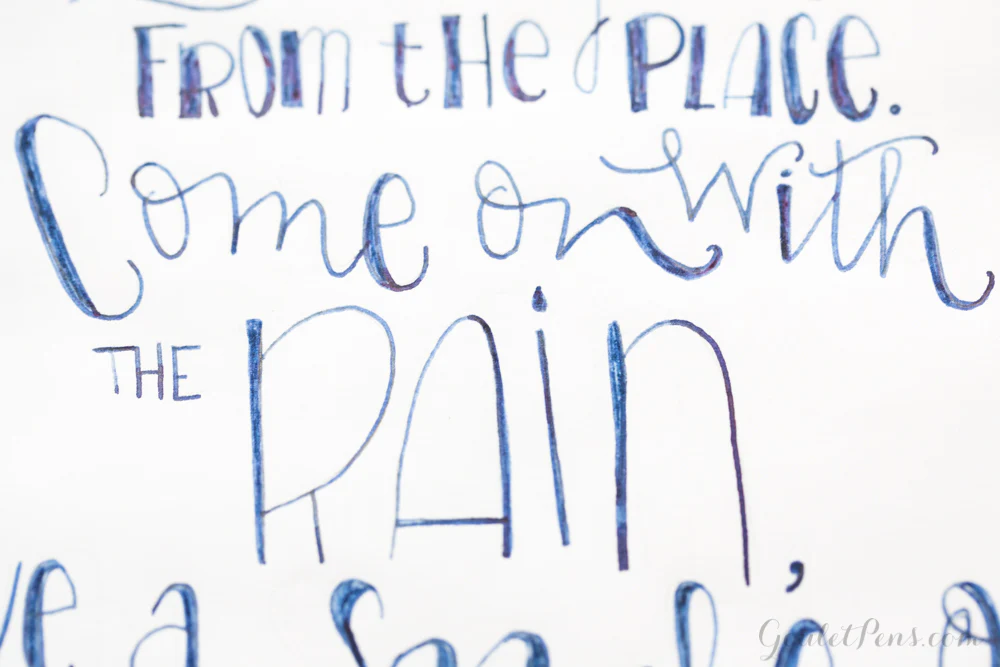 FROm tHe PLACe.
Come on with
THE RAin,
've a
GouletPens.com